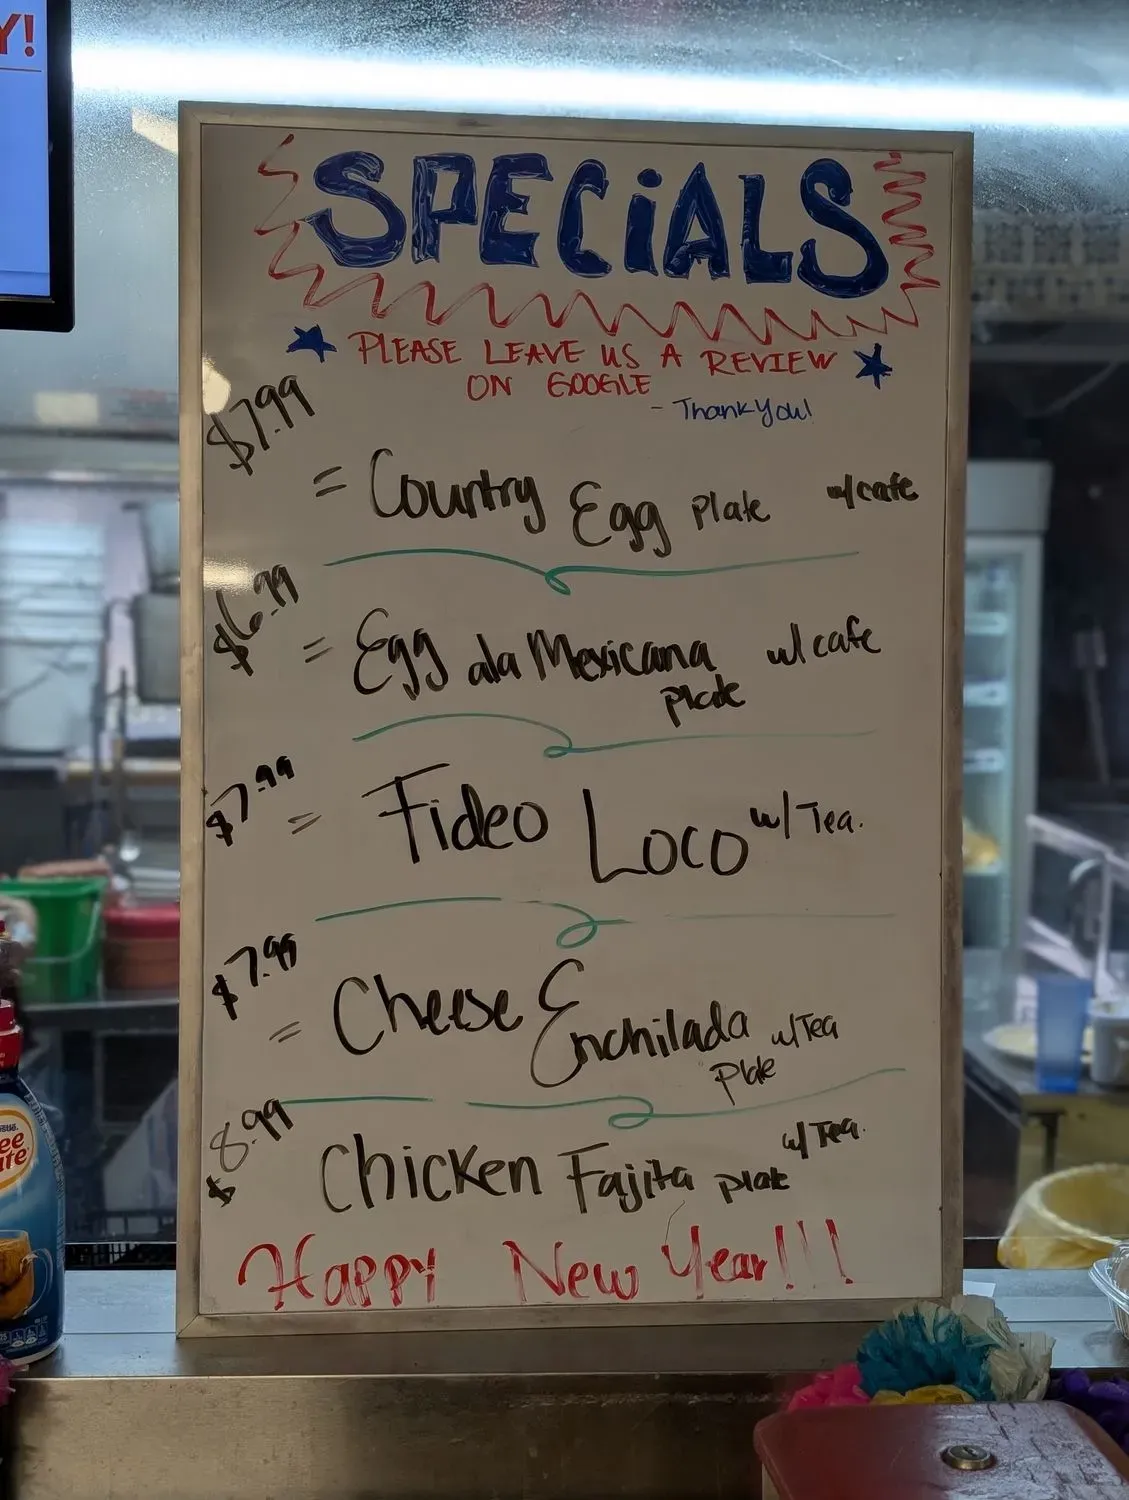 Y!
SPECiALS
PLEASE LEAVE US A REVIEW
ON GOOGLE
- Thank You!
$7.99
= Country Egg Plate w/cafe
$6.99
= Egg ala Mexicana w/ cafe
plate
$7.99
= Fideo Loco w/ Tea.
$7.99
= Cheese Enchilada w/Tea
Plate
$8.99
Chicken Fajita plate w/ Tea.
Happy New Year!!!